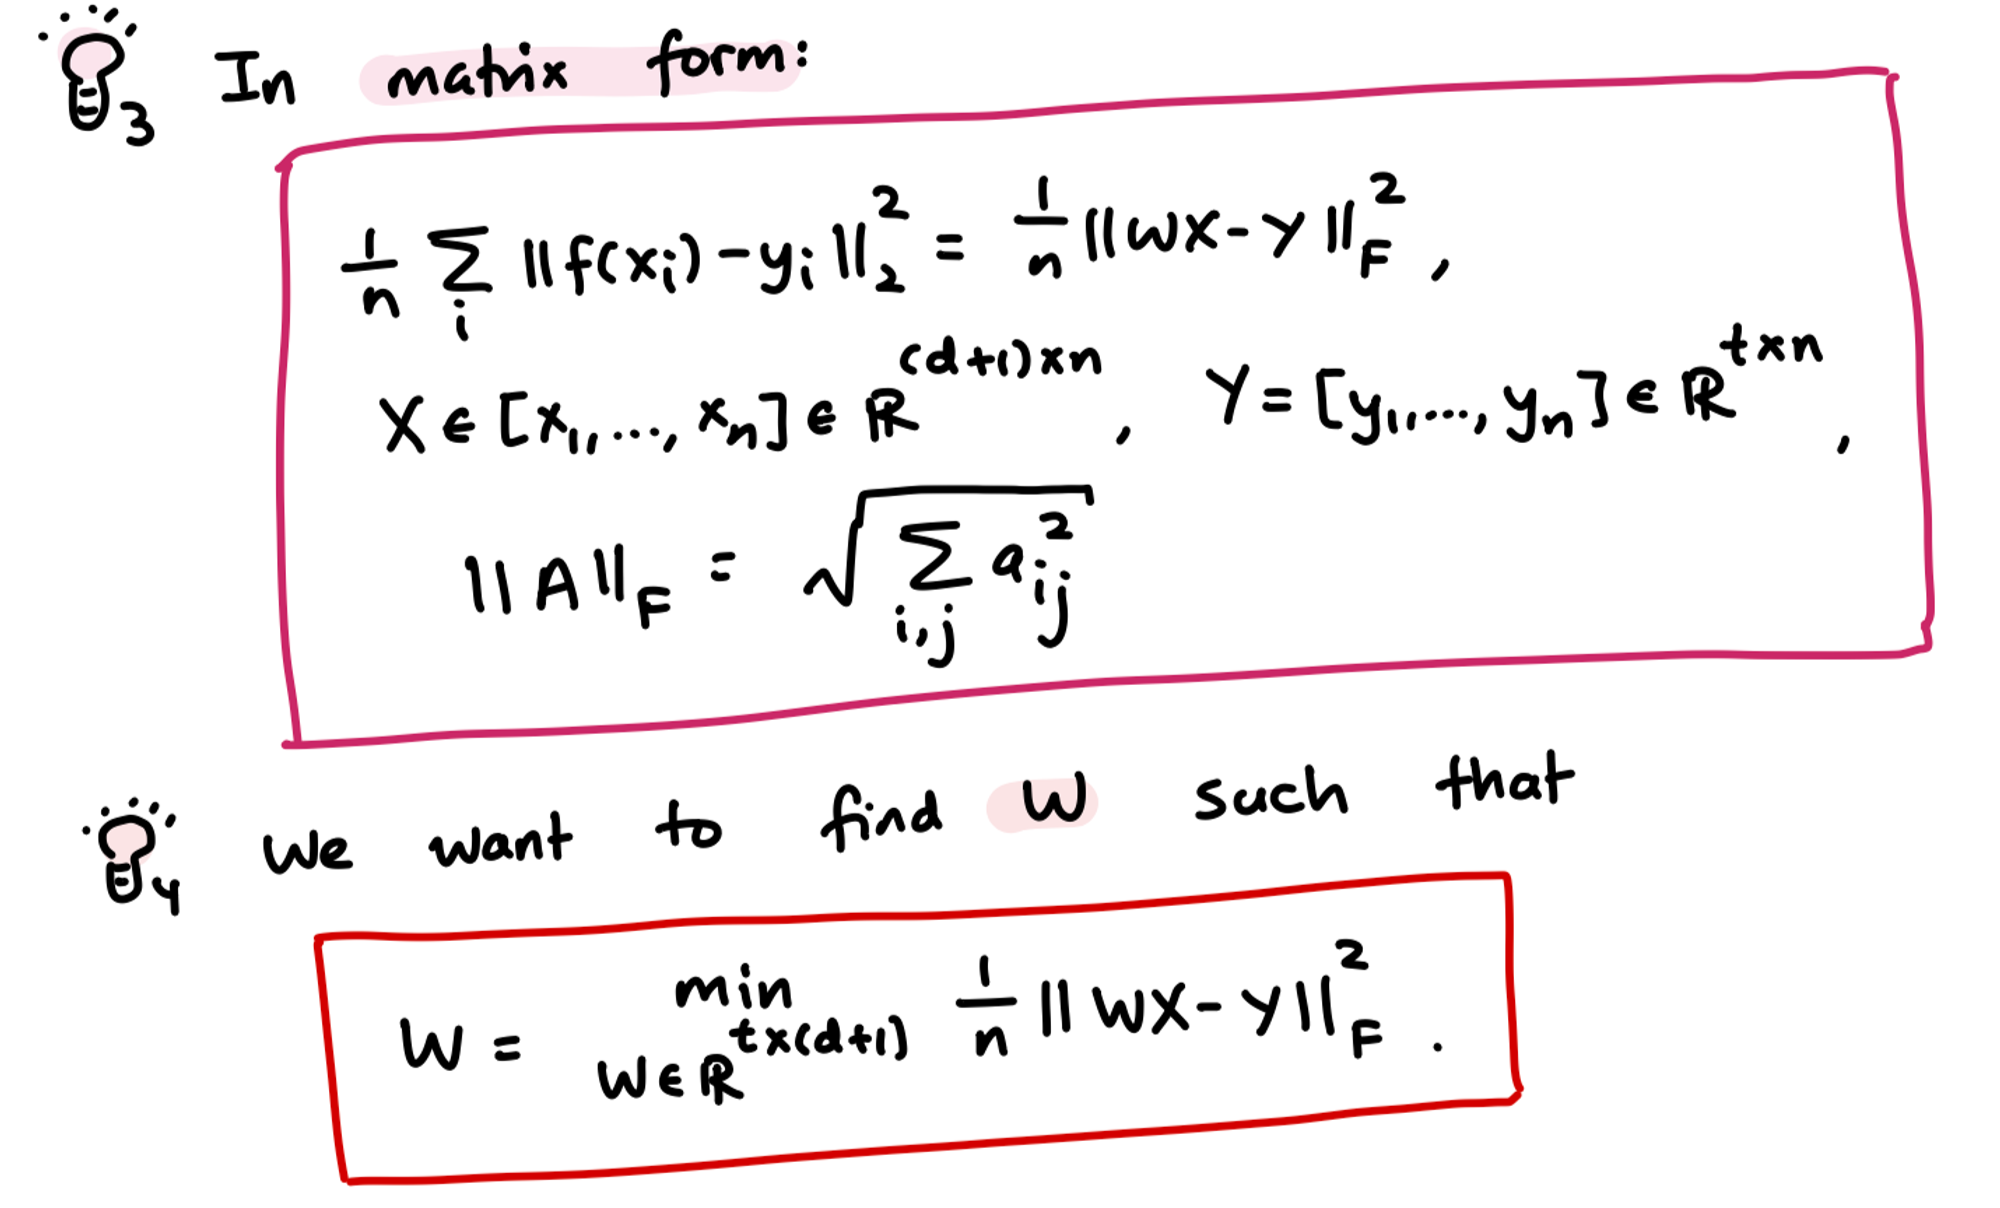 3 In matrix form:
1/n Σ_i ||f(x_i) - y_i||_2^2 = 1/n ||WX - Y||_F^2 ,
X ∈ [x_1, ..., x_n] ∈ ℝ^{(d+1)×n} , Y = [y_1, ..., y_n] ∈ ℝ^{t×n} ,
||A||_F = √(Σ_{i,j} a_{ij}^2)
4 We want to find W such that
W = min_{W∈ℝ^{t×(d+1)}} 1/n ||WX - Y||_F^2 .